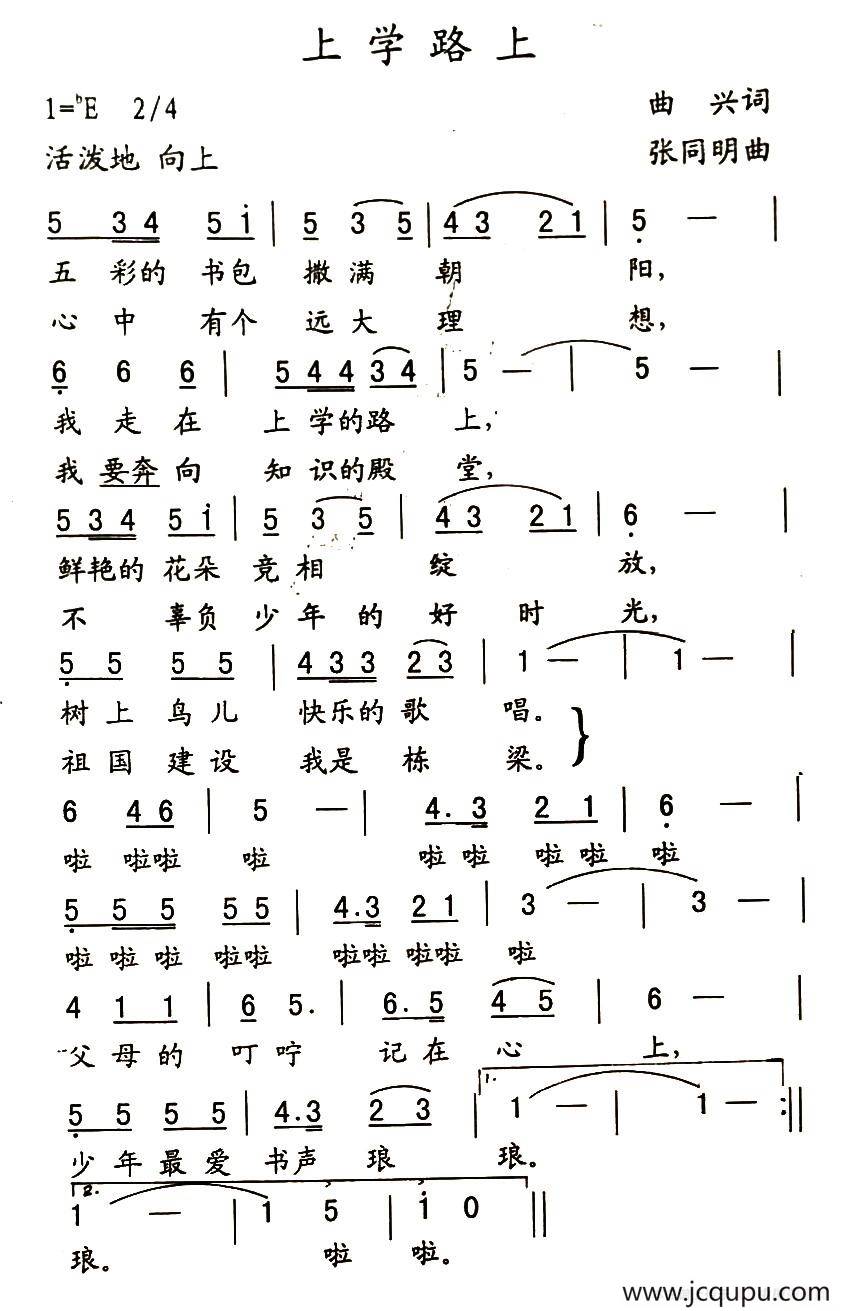 上学路上
1=♭E 2/4 曲 兴词
活泼地 向上 张同明曲
5 3 4 5 i | 5 3 5 | 4 3 2 1 | 5 — |
五 彩的 书包 撒满 朝 阳，
心 中 有个 远大 理 想，
6 6 6 | 5 4 4 3 4 | 5 — | 5 — |
我 走 在 上 学的路 上，
我 要奔 向 知 识的殿 堂，
5 3 4 5 i | 5 3 5 | 4 3 2 1 | 6 — |
鲜艳的 花朵 竞相 绽 放，
不 辜负 少年 的 好 时 光，
5 5 5 5 | 4 3 3 2 3 | 1 — | 1 — |
树上 鸟儿 快乐的 歌 唱。
祖国 建设 我是 栋 梁。
6 4 6 | 5 — | 4. 3 2 1 | 6 — |
啦 啦啦 啦 啦 啦 啦 啦 啦
5 5 5 5 5 | 4. 3 2 1 | 3 — | 3 — |
啦 啦 啦 啦啦 啦啦 啦啦 啦
4 1 1 | 6 5. | 6. 5 4 5 | 6 — |
父 母 的 叮 咛 记 在 心 上，
1.
5 5 5 5 | 4. 3 2 3 | 1 — | 1 — :||
少 年 最 爱 书声 琅 琅。
2.
1 — | 1 5 | i 0 ||
琅。 啦 啦。
www.jcqupu.com